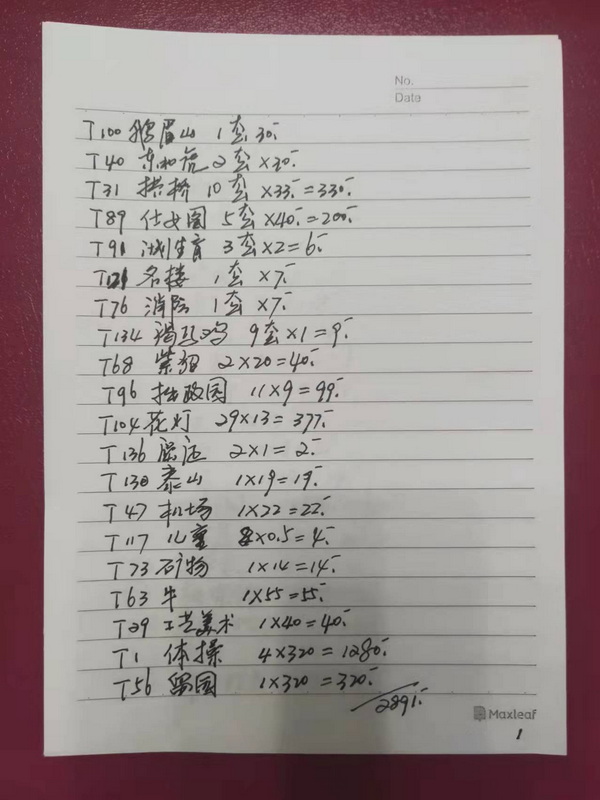 No.
Date
T100 峨眉山 1套 30.-
T40 东北虎 2套 ×30.-
T31 拱桥 10套 ×33.-=330.-
T89 仕女图 5套×40.-=200.-
T91 计生育 3套×2=6.-
T121 名楼 1套 ×7.-
T76 消防 1套 ×7.-
T134 褐马鸡 9套×1=9.-
T68 紫貂 2×20=40.-
T96 拙政园 11×9=99.-
T104 花灯 29×13=377.-
T136 2×1=2.-
T130 泰山 1×19=19.-
T47 机场 1×22=22.-
T117 儿童 8×0.5=4.-
T73 矿物 1×14=14.-
T63 牛 1×55=55.-
T29 工艺美术 1×40=40.-
T1 体操 4×320=1280.-
T56 留园 1×320=320.-
2891.-
Maxleaf
1